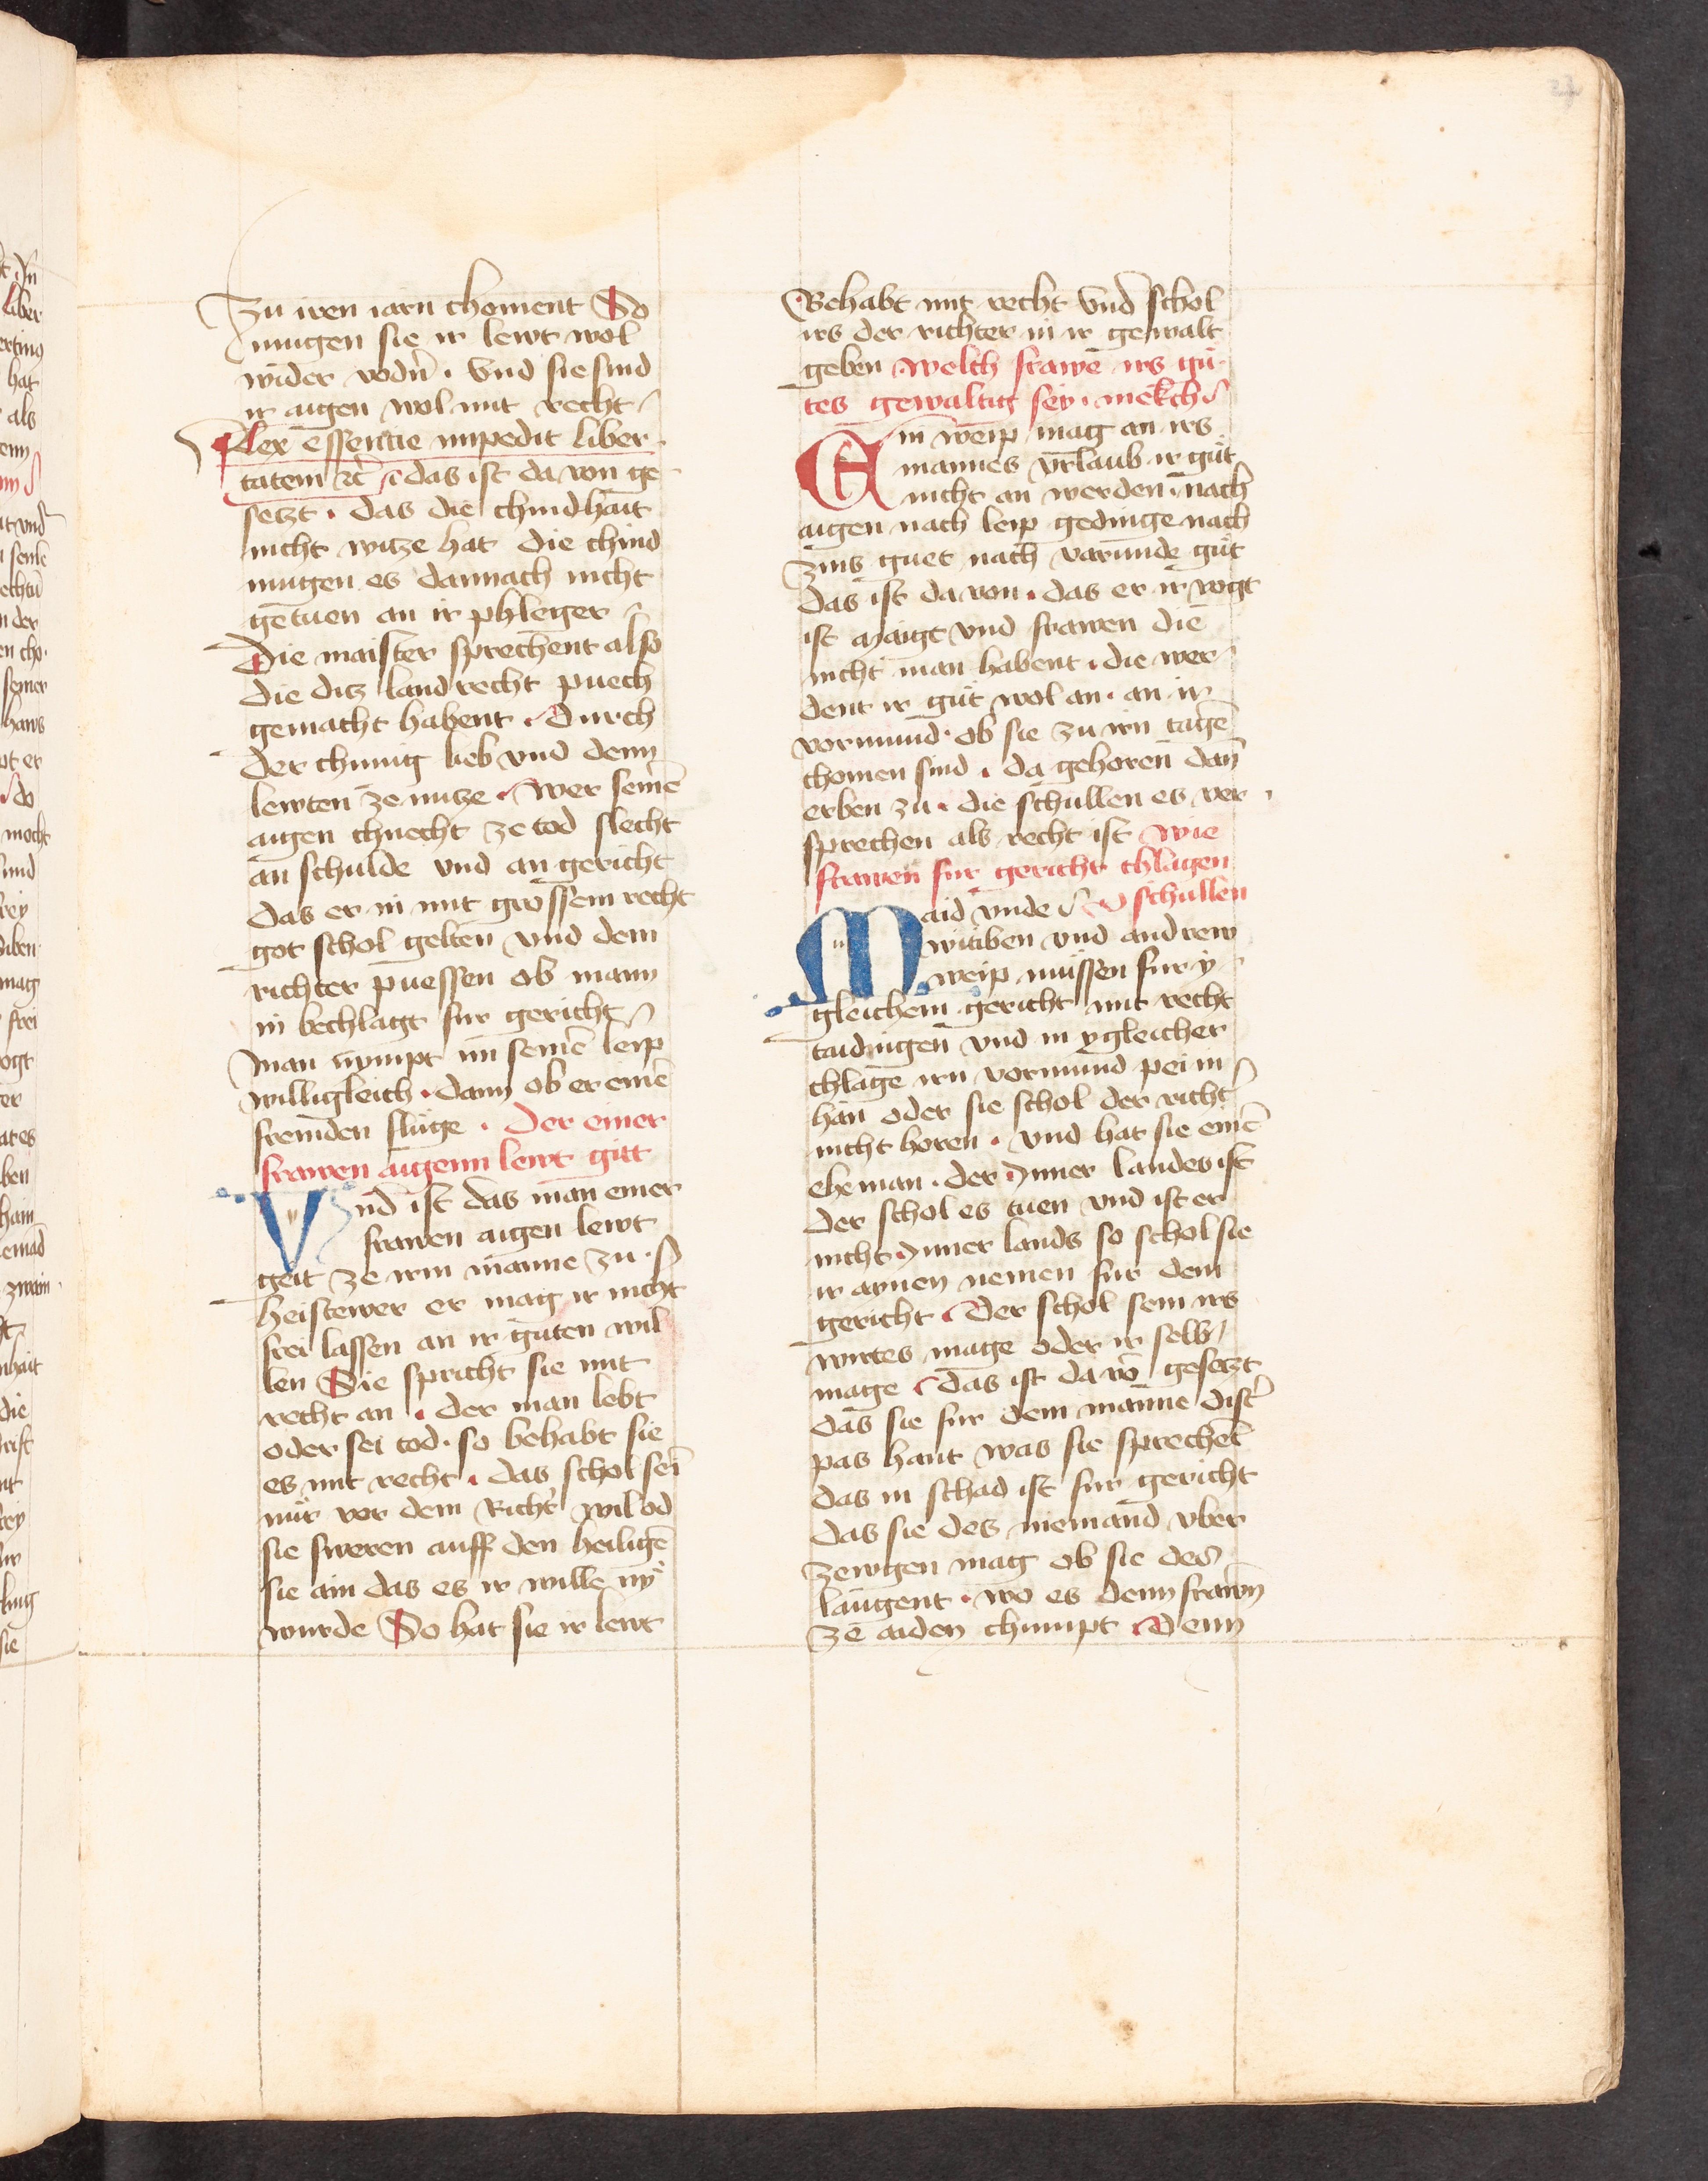 Zu iren iarn choment So
mugen sie ir lewt wol
wider vodn̄ . Vnd sie sind
ir aigen wol mit recht
lex essencie impedit liber
tatem ꝛc̄ das ist da von ge
setzt . das die chindhait
nicht witze hat die chind
mugen es dannach nicht
getuen an ir phleger
Die maister sprechent also
die ditz landrecht puech
gemacht habent . Durch
der chunig lieb vnd denn
lewten ze nutze . Wer seinē
aigen chnecht ze tod slecht
an schulde vnd an gericht
das er in mit grossem recht
got schol gelten vnd dem
richter puessen ob mann
in bechlagt fur gericht
man nympt im seinē leip
willigleich . dann ob er einē
fremden sluge . Der einer
frawen aigenn lewt gitt
Vnd ist das man einer
frawen aigen lewt
geit ze irm manne zu .
heistewer er mag ir nicht
frei lassen an ir guten wil
len Sie spricht sie mit
recht an . der man lebt
oder sei tod . so behabt sie
es mit recht . das schol sei
nur vor dem Richt̄ wil od
sie sweren auff den heiligē
sie ain das es ir wille ny
wurde So hat sie ir lewt
Behabt mit recht vnd schol
irs der richter in ir gewalt
geben Welch frawē irs gu
tes gewaltig sey . mekch
Ein weip mag an irs
mannes vrlaub ir gut
nicht an werden . nach
aigen nach leip gedinge nach
zins guet nach varunde gut
das ist da von . das er ir vogt
ist Maigt vnd frawen die
nicht man habent . die wer
dent ir gut wol an . an ir
vormund . ob sie zu irn tagē
chomen sind . da gehoren dan
erben zu . die schullen es ver
sprechen als recht ist Wie
frawen fur gericht chlagen
schullen
Maid vnde
witiben vnd andrew
weip mussen fur y
gleichem gericht mit recht
taidingen vnd in ygleicher
chlage irn vormund pei in
han oder sie schol der richt̄
nicht horen . vnd hat sie einē
eheman . der Inner landes ist
der schol es tuen vnd ist er
nicht Inner lands so schol sie
ir aynen nemen fur dem
gericht . Der schol sein irs
wirtes mage oder ir selb
mage . das ist da vō gesetzt
das sie fur dem manne dist̄
pas hant was sie sprechēt
das in schad ist fur gericht
das sie des niemand vber
zewgen mag ob sie des
laugent . wo es denn frawn
ze aiden chumpt . Denn